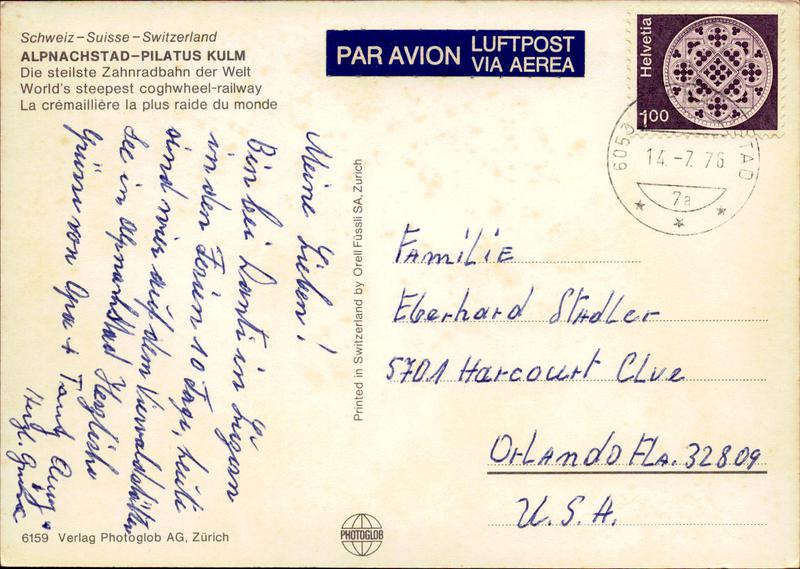 Schweiz – Suisse – Switzerland
ALPNACHSTAD–PILATUS KULM
Die steilste Zahnradbahn der Welt
World's steepest coghwheel-railway
La crémaillière la plus raide du monde
PAR AVION
LUFTPOST
VIA AEREA
Helvetia
100
6053 STAD
14.-7.76
7a
Meine Lieben!
Bin bei Danti in
in den Ferien 10 Tage, heute
sind wir auf dem Vierwaldstätter
See in Alpnachstad Herzliche
Grüsse von Opa + Tante
Herzl.
Printed in Switzerland by Orell Füssli SA, Zurich
Familie
Eberhard Stadler
5701 Harcourt Clve
Orlando Fla. 32809
U.S.A.
6159 Verlag Photoglob AG, Zürich
PHOTOGLOB